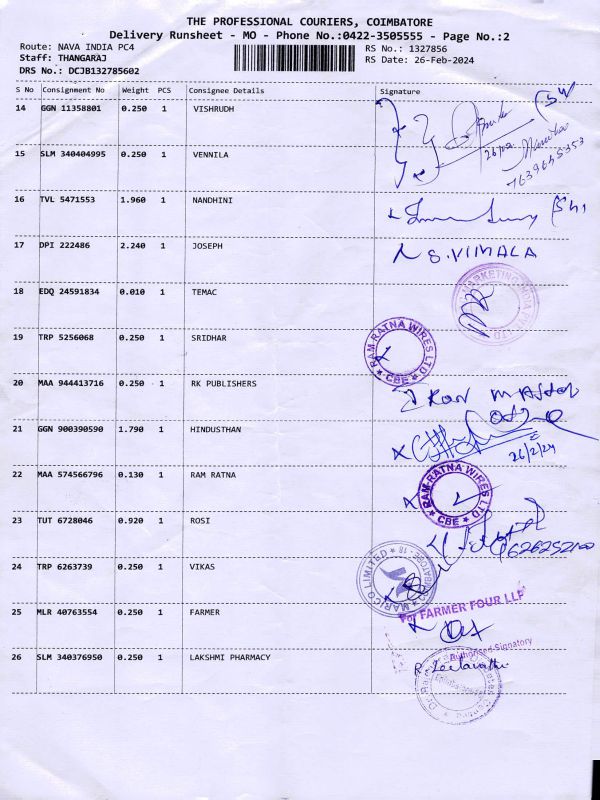 THE PROFESSIONAL COURIERS, COIMBATORE
Delivery Runsheet - MO - Phone No.:0422-3505555 - Page No.:2
Route: NAVA INDIA PC4
RS No.: 1327856
Staff: THANGARAJ
RS Date: 26-Feb-2024
DRS No.: DCJB132785602
S No Consignment No Weight PCS Consignee Details Signature
14 GGN 11358801 0.250 1 VISHRUDH
15 SLM 340404995 0.250 1 VENNILA
16 TVL 5471553 1.960 1 NANDHINI
17 DPI 222486 2.240 1 JOSEPH S.VIMALA
18 EDQ 24591834 0.010 1 TEMAC
19 TRP 5256068 0.250 1 SRIDHAR
RAM RATNA WIRES LTD
* CBE *
20 MAA 944413716 0.250 1 RK PUBLISHERS
21 GGN 900390590 1.790 1 HINDUSTHAN
26/2/24
22 MAA 574566796 0.130 1 RAM RATNA
RAM RATNA WIRES LTD
* CBE *
23 TUT 6728046 0.920 1 ROSI
24 TRP 6263739 0.250 1 VIKAS
MARICO LIMITED
25 MLR 40763554 0.250 1 FARMER
For FARMER FOUR LLP
Authorised Signatory
26 SLM 340376950 0.250 1 LAKSHMI PHARMACY